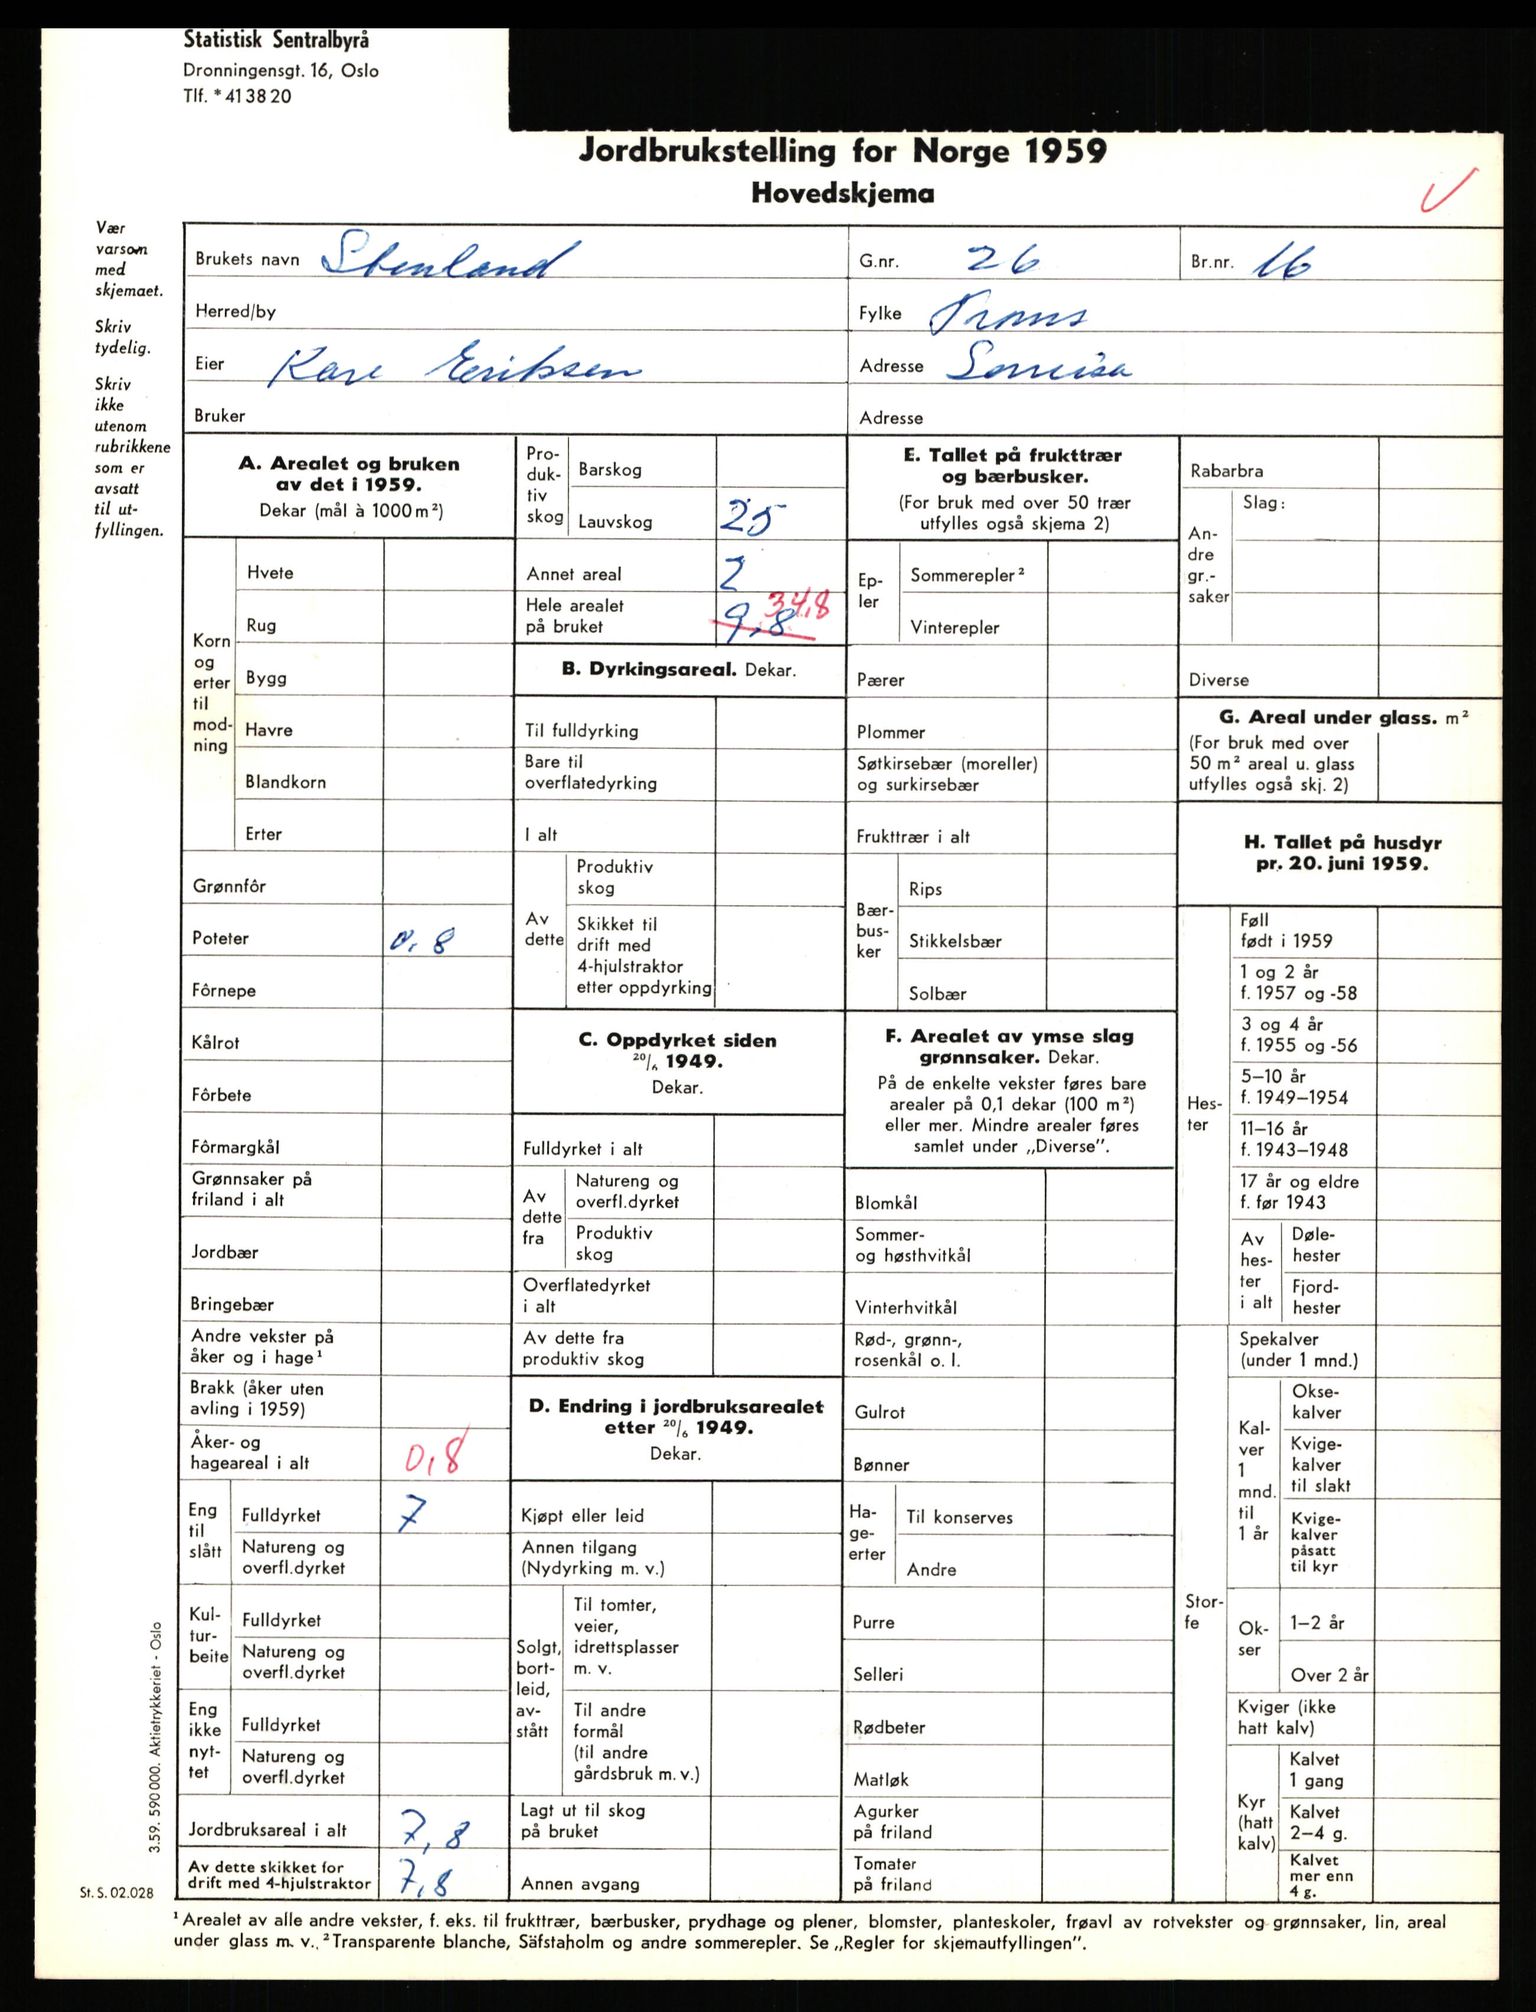 Statistisk Sentralbyrå
Dronningensgt. 16, Oslo
Tlf. * 41 38 20
Jordbrukstelling for Norge 1959
Hovedskjema
Vær
varsom
med
skjemaet.
Skriv
tydelig.
Skriv
ikke
utenom
rubrikkene
som er
avsatt
til ut-
fyllingen.
Brukets navn Stenland
G.nr. 26
Br.nr. 16
Herred/by
Fylke Troms
Eier Kåre Eriksen
Adresse
Bruker
Adresse
A. Arealet og bruken
av det i 1959.
Dekar (mål à 1000 m²)
Korn
og
erter
til
mod-
ning
Hvete
Rug
Bygg
Havre
Blandkorn
Erter
Grønnfôr
Poteter 0,8
Fôrnepe
Kålrot
Fôrbete
Fôrmargkål
Grønnsaker på
friland i alt
Jordbær
Bringebær
Andre vekster på
åker og i hage¹
Brakk (åker uten
avling i 1959)
Åker- og
hageareal i alt 0,8
Eng
til
slått
Fulldyrket 7
Natureng og
overfl.dyrket
Kul-
tur-
beite
Fulldyrket
Natureng og
overfl.dyrket
Eng
ikke
nyt-
tet
Fulldyrket
Natureng og
overfl.dyrket
Jordbruksareal i alt 7,8
Av dette skikket for
drift med 4-hjulstraktor 7,8
Pro-
duk-
tiv
skog
Barskog
Lauvskog 25
Annet areal 2
Hele arealet
på bruket 9,8 34,8
B. Dyrkingsareal. Dekar.
Til fulldyrking
Bare til
overflatedyrking
I alt
Av
dette
Produktiv
skog
Skikket til
drift med
4-hjulstraktor
etter oppdyrking
C. Oppdyrket siden
20/6 1949.
Dekar.
Fulldyrket i alt
Av
dette
fra
Natureng og
overfl.dyrket
Produktiv
skog
Overflatedyrket
i alt
Av dette fra
produktiv skog
D. Endring i jordbruksarealet
etter 20/6 1949.
Dekar.
Kjøpt eller leid
Annen tilgang
(Nydyrking m. v.)
Solgt,
bort-
leid,
av-
stått
Til tomter,
veier,
idrettsplasser
m. v.
Til andre
formål
(til andre
gårdsbruk m. v.)
Lagt ut til skog
på bruket
Annen avgang
E. Tallet på frukttrær
og bærbusker.
(For bruk med over 50 trær
utfylles også skjema 2)
Ep-
ler
Sommerepler²
Vinterepler
Pærer
Plommer
Søtkirsebær (moreller)
og surkirsebær
Frukttrær i alt
Bær-
bus-
ker
Rips
Stikkelsbær
Solbær
F. Arealet av ymse slag
grønnsaker. Dekar.
På de enkelte vekster føres bare
arealer på 0,1 dekar (100 m²)
eller mer. Mindre arealer føres
samlet under „Diverse”.
Blomkål
Sommer-
og høsthvitkål
Vinterhvitkål
Rød-, grønn-,
rosenkål o. l.
Gulrot
Bønner
Ha-
ge-
erter
Til konserves
Andre
Purre
Selleri
Rødbeter
Matløk
Agurker
på friland
Tomater
på friland
Rabarbra
An-
dre
gr.-
saker
Slag:
Diverse
G. Areal under glass. m²
(For bruk med over
50 m² areal u. glass
utfylles også skj. 2)
H. Tallet på husdyr
pr. 20. juni 1959.
Hes-
ter
Føll
født i 1959
1 og 2 år
f. 1957 og -58
3 og 4 år
f. 1955 og -56
5–10 år
f. 1949–1954
11–16 år
f. 1943–1948
17 år og eldre
f. før 1943
Av
hes-
ter
i alt
Døle-
hester
Fjord-
hester
Stor-
fe
Spekalver
(under 1 mnd.)
Kal-
ver
1
mnd.
til
1 år
Okse-
kalver
Kvige-
kalver
til slakt
Kvige-
kalver
påsatt
til kyr
Ok-
ser
1–2 år
Over 2 år
Kviger (ikke
hatt kalv)
Kyr
(hatt
kalv)
Kalvet
1 gang
Kalvet
2–4 g.
Kalvet
mer enn
4 g.
3.59. 590 000. Aktietrykkeriet - Oslo
St. S. 02.028
¹ Arealet av alle andre vekster, f. eks. til frukttrær, bærbusker, prydhage og plener, blomster, planteskoler, frøavl av rotvekster og grønnsaker, lin, areal
under glass m. v. ² Transparente blanche, Säfstaholm og andre sommerepler. Se „Regler for skjemautfyllingen”.